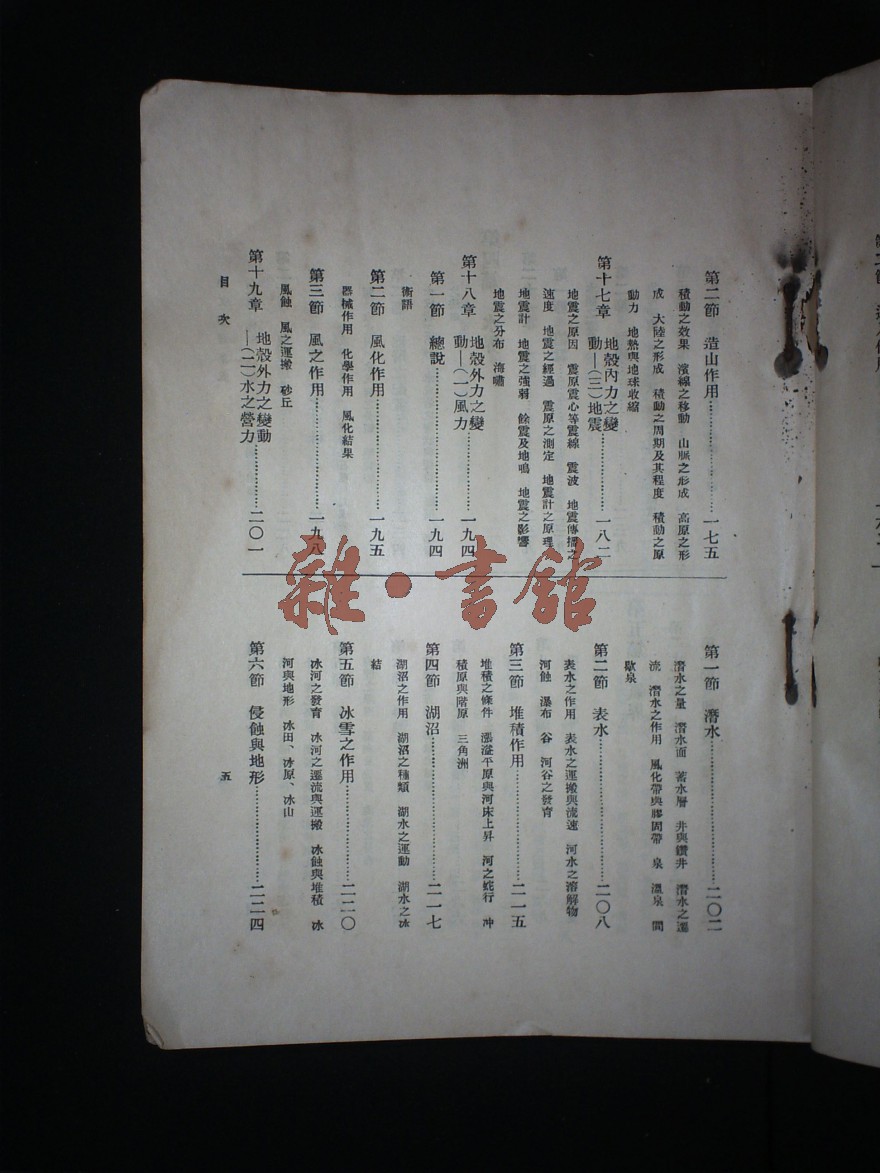 第二節　造山作用……一七五
積動之效果　濱線之移動　山脈之形成　高原之形
成　大陸之形成　積動之周期及其程度　積動之原
動力　地熱與地球收縮
第十七章　地殼內力之變
動—(三)地震……一八二
地震之原因　震原震心等震線　震波　地震傳播之
速度　地震之經過　震原之測定　地震計之原理
地震計　地震之強弱　餘震及地鳴　地震之影響
地震之分布　海嘯
第十八章　地殼外力之變
動—(一)風力……一九四
第一節　總說……一九四
術語
第二節　風化作用……一九五
器械作用　化學作用　風化結果
第三節　風之作用……一九八
風蝕　風之運搬　砂丘
第十九章　地殼外力之變動
—(二)水之營力……二〇一
目次
第一節　潛水……二〇二
潛水之量　潛水面　蓄水層　井與鑽井　潛水之運
流　潛水之作用　風化帶與膠固帶　泉　溫泉　間
歇泉
第二節　表水……二〇八
表水之作用　表水之運搬與流速　河水之溶解物
河蝕　瀑布　谷　河谷之發育
第三節　堆積作用……二一五
堆積之條件　漲溢平原與河床上昇　河之蛇行　冲
積原與階原　三角洲
第四節　湖沼……二一七
湖沼之作用　湖沼之種類　湖水之運動　湖水之冰
結
第五節　冰雪之作用……二二〇
冰河之發育　冰河之運流與運搬　冰蝕與堆積　冰
河與地形　冰田、冰原、冰山
第六節　侵蝕與地形……二二四
五
雜·書舘